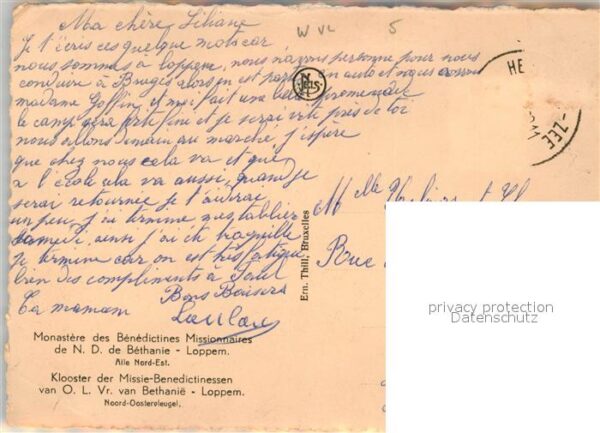 Ma chère Liliane
Je t'écris ces quelque mots car
nous sommes à loppem, nous n'avons personne pour nous
conduire à Bruges alors on est parti en auto et nous avons
madame Goffin et moi fait une belle promenade
le camp sera fini et je serai vite près de toi
nous allons demain au marché j'espère
que chez nous cela va et que
a l'école cela va aussi, quand je
serai retournée je t'
un peu, j'ai terminé mes tabliers
samedi, ainsi j'ai été tranquille
Je termine car on est très fatigué
bien des compliments à
Bons Baisers
Ta maman
Loulou
W VL 5
N
ELS
HE
-ZEE
Mlle
Rue
Ern. Thill, Bruxelles
privacy protection
Datenschutz
Monastère des Bénédictines Missionnaires
de N. D. de Béthanie - Loppem.
Aile Nord-Est.
Klooster der Missie-Benedictinessen
van O. L. Vr. van Bethanië - Loppem.
Noord-Oostervleugel.